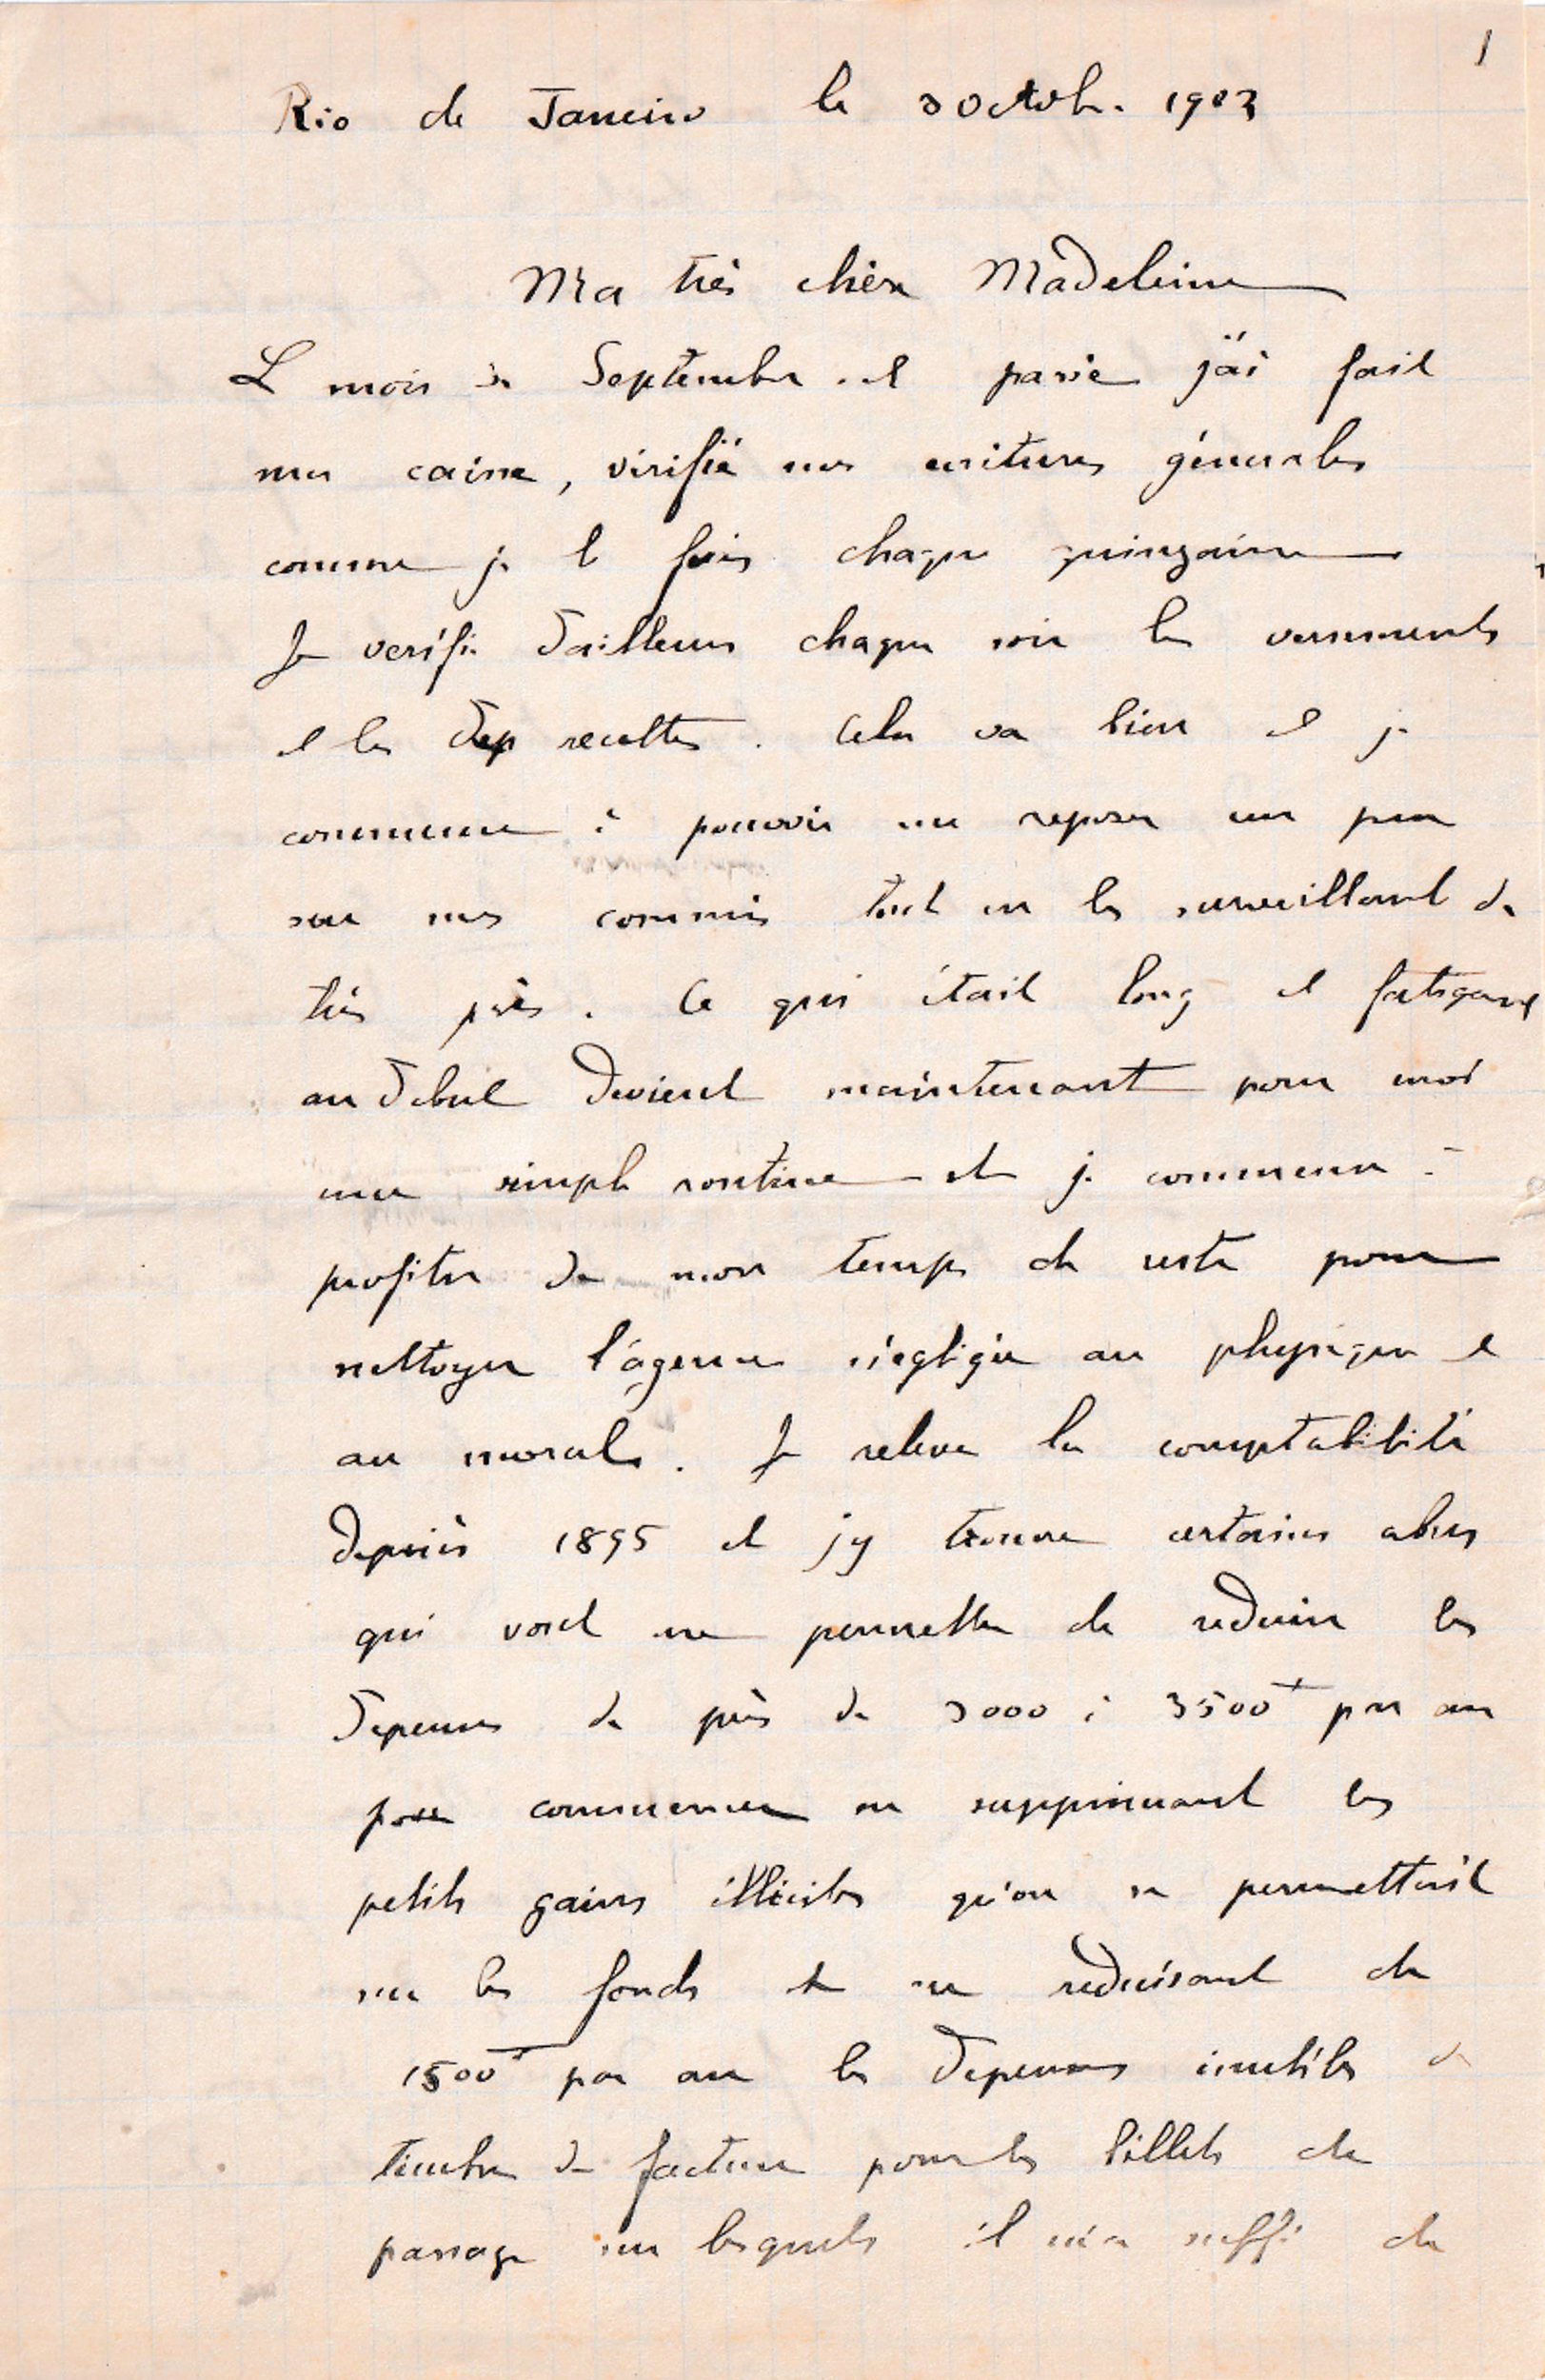 1
Rio de Janeiro le 3 octob. 1903
Ma très chère Madeleine
Le mois de Septembre est passé j'ai fait
ma caisse, vérifié mes écritures générales
comme je le fais chaque quinzaine
Je vérifie d'ailleurs chaque soir les versements
et les dep recettes. Cela va bien et je
commence à pouvoir me reposer un peu
sur mes commis tout en les surveillant de
très près. Ce qui était long et fatigant
au début devient maintenant pour moi
une simple routine et je commence à
profiter de mon temps de reste pour
nettoyer l'agence négligée au physique et
au moral. Je relève la comptabilité
depuis 1895 et j'y trouve certains abus
qui vont me permettre de réduire les
dépenses de près de 3000 à 3500f par an
pour commencer en supprimant les
petits gains illicites qu'on se permettait
sur les fonds et en réduisant de
1500f par an les dépenses inutiles de
timbre de facture pour les billets de
passage sur lesquels il m'a suffi de